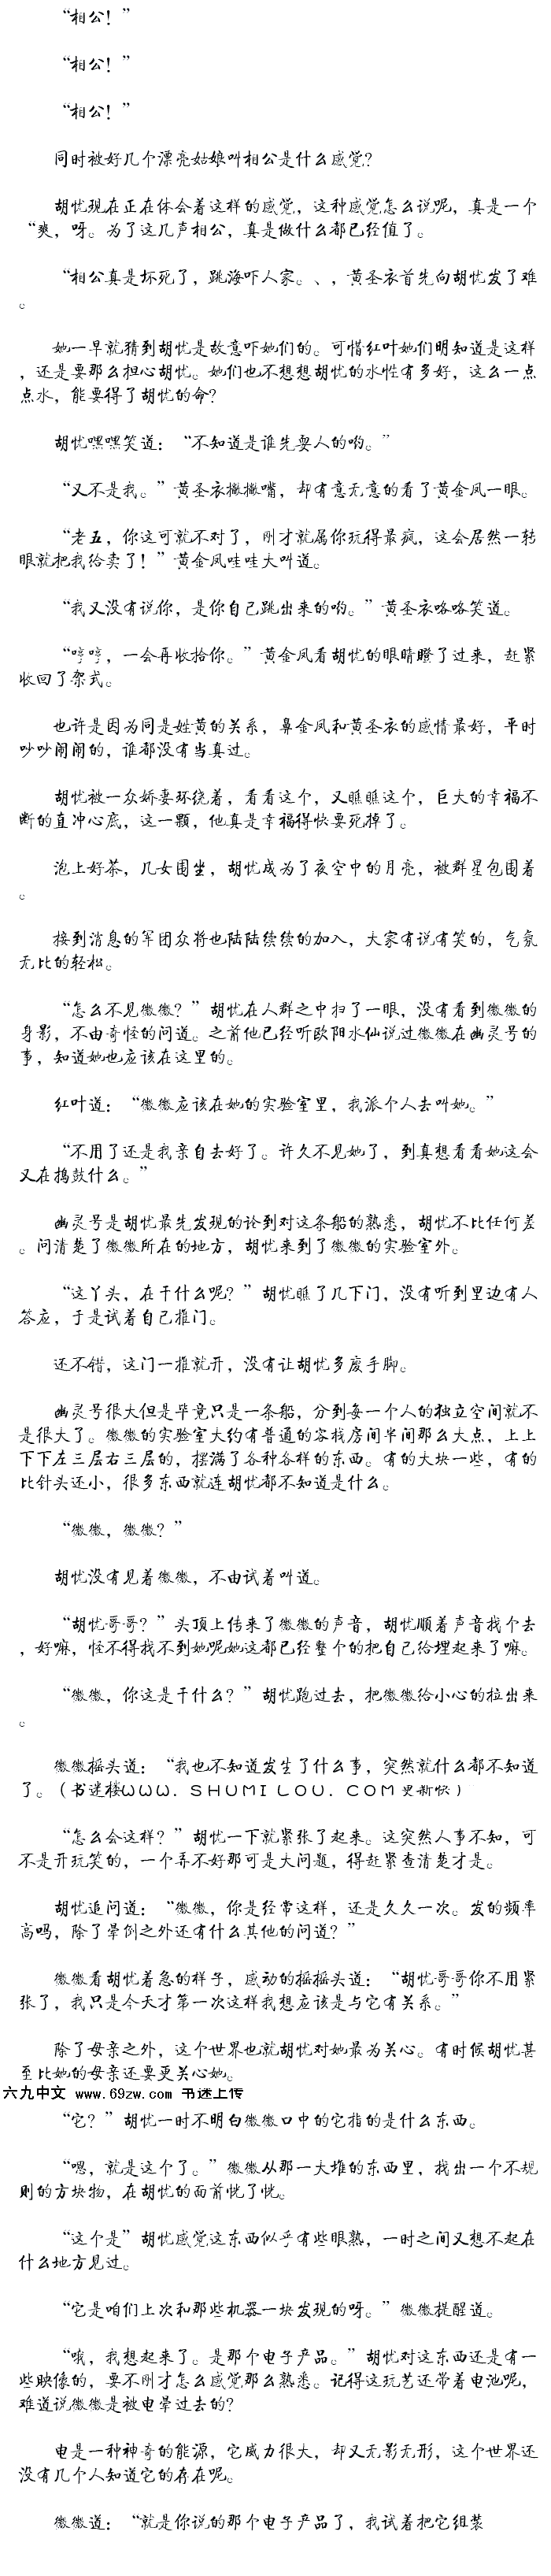 “相公！”
“相公！”
“相公！”
同时被好几个漂亮姑娘叫相公是什么感觉？
胡忧现在正在体会着这样的感觉，这种感觉怎么说呢，真是一个
“爽，呀。为了这几声相公，真是做什么都已经值了。
“相公真是坏死了，跳海吓人家。、，黄圣衣首先向胡忧发了难
。
她一早就猜到胡忧是故意吓她们的。可惜红叶她们明知道是这样
，还是要那么担心胡忧。她们也不想想胡忧的水性有多好，这么一点
点水，能要得了胡忧的命？
胡忧嘿嘿笑道：“不知道是谁先耍人的哟。”
“又不是我。”黄圣衣撇撇嘴，却有意无意的看了黄金凤一眼。
“老五，你这可就不对了，刚才就属你玩得最疯，这会居然一转
眼就把我给卖了！”黄金凤哇哇大叫道。
“我又没有说你，是你自己跳出来的哟。”黄圣衣咯咯笑道。
“哼哼，一会再收拾你。”黄金凤看胡忧的眼睛瞪了过来，赶紧
收回了架式。
也许是因为同是姓黄的关系，鼻金凤和黄圣衣的感情最好，平时
吵吵闹闹的，谁都没有当真过。
胡忧被一众娇妻环绕着，看看这个，又瞧瞧这个，巨大的幸福不
断的直冲心底，这一颗，他真是幸福得快要死掉了。
泡上好茶，几女围坐，胡忧成为了夜空中的月亮，被群星包围着
。
接到消息的军团众将也陆陆续续的加入，大家有说有笑的，气氛
无比的轻松。
“怎么不见微微？”胡忧在人群之中扫了一眼，没有看到微微的
身影，不由奇怪的问道。之前他已经听欧阳水仙说过微微在幽灵号的
事，知道她也应该在这里的。
红叶道：“微微应该在她的实验室里，我派个人去叫她。”
“不用了还是我亲自去好了。许久不见她了，到真想看看她这会
又在捣鼓什么。”
幽灵号是胡忧最先发现的论到对这条船的熟悉，胡忧不比任何差
。问清楚了微微所在的地方，胡忧来到了微微的实验室外。
“这丫头，在干什么呢？”胡忧瞧了几下门，没有听到里边有人
答应，于是试着自己推门。
还不错，这门一推就开，没有让胡忧多废手脚。
幽灵号很大但是毕竟只是一条船，分到每一个人的独立空间就不
是很大了。微微的实验室大约有普通的客栈房间半间那么大点，上上
下下左三层右三层的，摆满了各种各样的东西。有的大块一些，有的
比针头还小，很多东西就连胡忧都不知道是什么。
“微微，微微？”
胡忧没有见着微微，不由试着叫道。
“胡忧哥哥？”头顶上传来了微微的声音，胡忧顺着声音找个去
，好嘛，怪不得找不到她呢她这都已经整个的把自己给埋起来了嘛。
“微微，你这是干什么？”胡忧跑过去，把微微给小心的拉出来
。
微微摇头道：“我也不知道发生了什么事，突然就什么都不知道
了。（书迷楼WWW．ＳＨＵＭＩＬＯＵ．ＣＯＭ更新快）
“怎么会这样？”胡忧一下就紧张了起来。这突然人事不知，可
不是开玩笑的，一个弄不好那可是大问题，得赶紧查清楚才是。
胡忧追问道：“微微，你是经常这样，还是久久一次。发的频率
高吗，除了晕倒之外还有什么其他的问道？”
微微看胡忧着急的样子，感动的摇摇头道：“胡忧哥哥你不用紧
张了，我只是今天才第一次这样我想应该是与它有关系。”
除了母亲之外，这个世界也就胡忧对她最为关心。有时候胡忧甚
至比她的母亲还要更关心她。
六九中文 www.69zw.com 书迷上传
“它？”胡忧一时不明白微微口中的它指的是什么东西。
“嗯，就是这个了。”微微从那一大堆的东西里，找出一个不规
则的方块物，在胡忧的面前恍了恍。
“这个是”胡忧感觉这东西似乎有些眼熟，一时之间又想不起在
什么地方见过。
“它是咱们上次和那些机器一块发现的呀。”微微提醒道。
“哦，我想起来了。是那个电子产品。”胡忧对这东西还是有一
些映像的，要不刚才怎么感觉那么熟悉。记得这玩艺还带着电池呢，
难道说微微是被电晕过去的？
电是一种神奇的能源，它威力很大，却又无影无形，这个世界还
没有几个人知道它的存在呢。
微微道：“就是你说的那个电子产品了，我试着把它组装